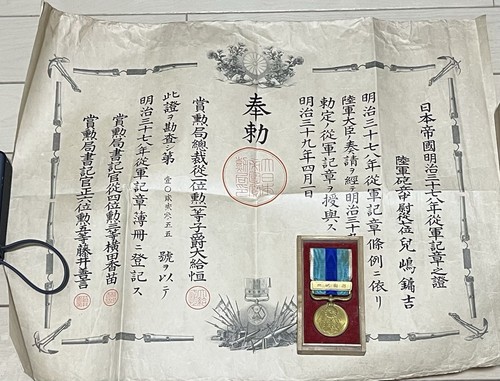 日本帝國明治三十七八年從軍記章之證
陸軍 中尉從 位 兒嶋
明治三十七八年從軍記章條例ニ依リ
陸軍大臣ノ奏請ヲ經テ明治三十
勅定ノ從軍記章ヲ授與ス
明治三十九年四月一日
奉勅
賞勲局總裁從二位勲一等子爵大給恒
此證ヲ勘査シ第 五五 號ヲ以テ
明治三十七八年從軍記章簿冊ニ登記ス
賞勲局書記官從四位勲三等横田香苗
賞勲局書記官正六位勲五等藤井善言